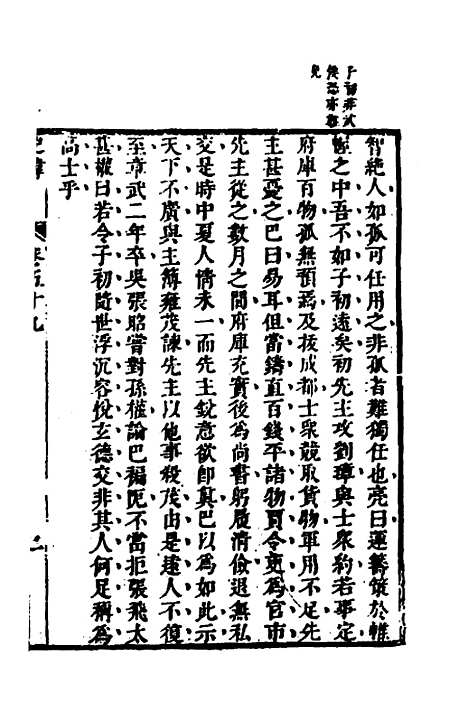 子初非武
侯恐亦難
免
智絶人如孤可任用之非孤者難獨任也亮曰運籌策於帷
幄之中吾不如子初遠矣初先主攻劉璋與士衆約若事定
府庫百物孤無預焉及拔成都士衆競取貨物軍用不足先
主甚憂之巴曰易耳但當鑄直百錢平諸物賈令吏為官市
先主從之數月之間府庫充實後為尚書躬履清儉退無私
交是時中夏人情未一而先主銳意欲即真巴以為如此示
天下不廣與主簿雍茂諫先主以他事殺茂由是遠人不復
至章武二年卒吳張昭嘗對孫權論巴褊阨不當拒張飛太
甚權曰若令子初隨世浮沉容悅玄德交非其人何足稱為
高士乎
史緯
卷五十九
二